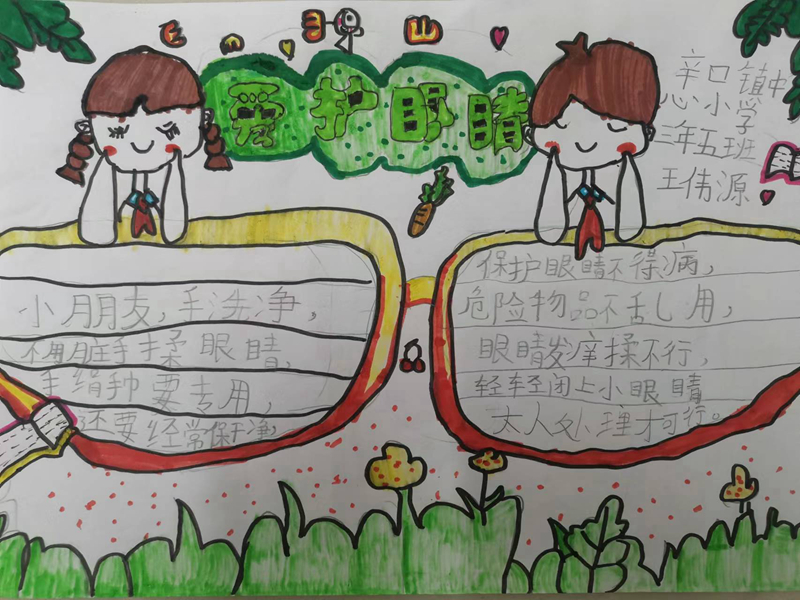 爱护眼睛
辛口镇中
心小学
三年五班
王伟源
小朋友，手洗净，
不用脏手揉眼睛，
手绢种要专用，
还要经常保干净，
保护眼睛不得病，
危险物品不乱用，
眼睛发痒揉不行，
轻轻闭上小眼睛
大人处理才可行。